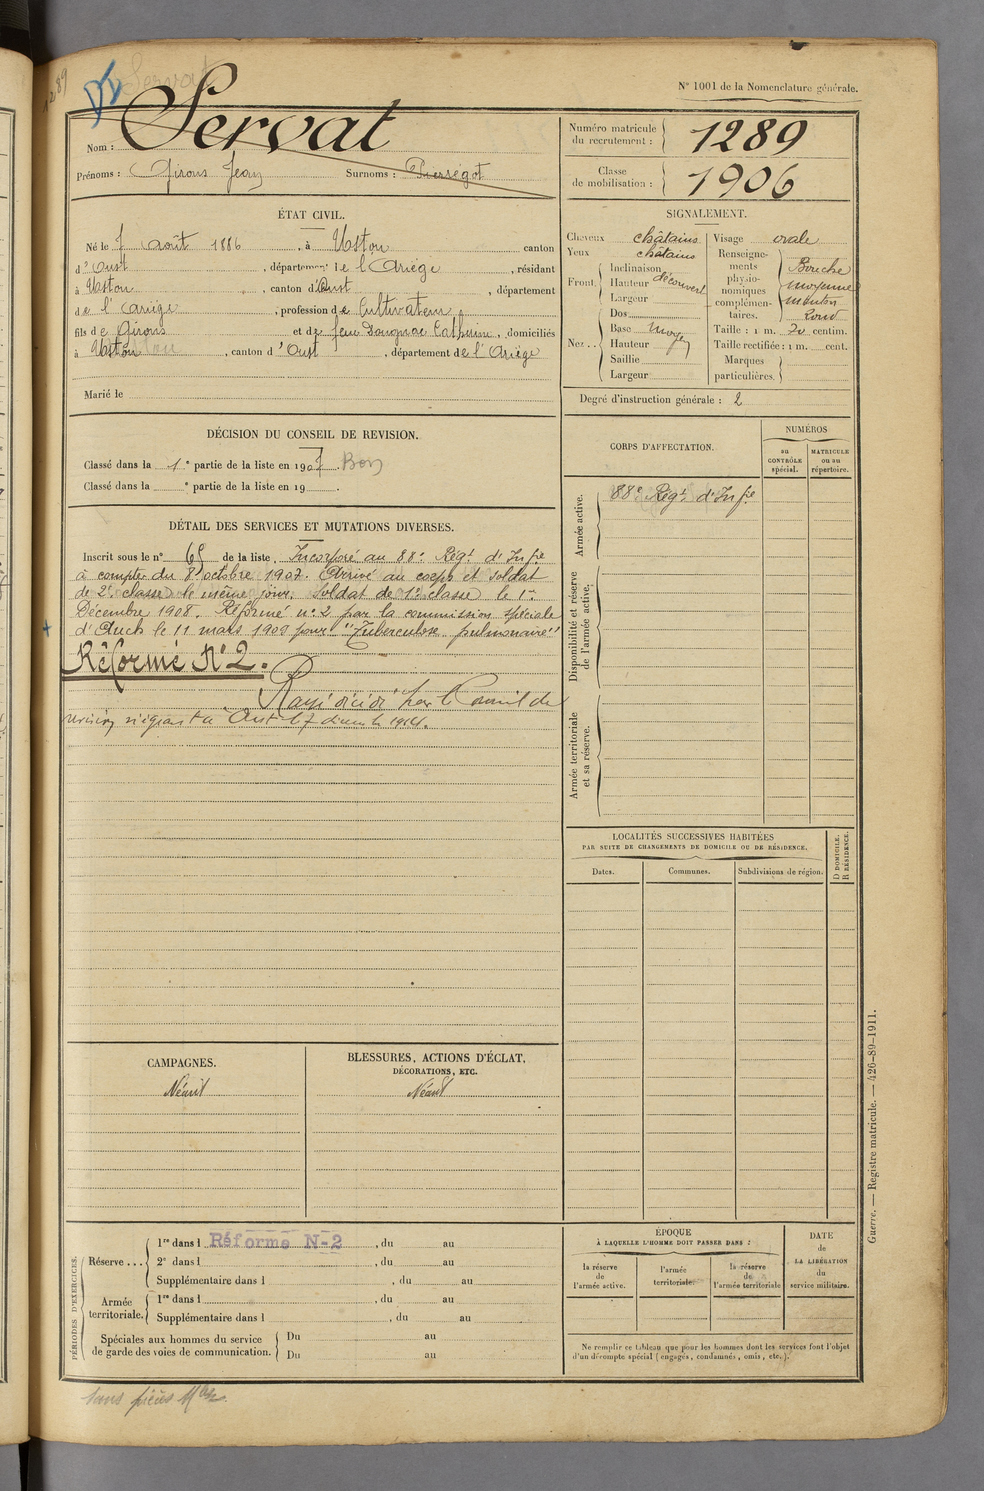 1289
Servat
N° 1001 de la Nomenclature générale.
Nom : Servat
Prénoms : Girons Jean Surnoms :
Numéro matricule du recrutement : 1289
Classe de mobilisation : 1906
ÉTAT CIVIL.
Né le 7 août 1886, à Ustou canton
d'Oust, département de l'Ariège, résidant
à Ustou, canton d'Oust, département
de l'Ariège, profession de Cultivateur
fils de Girons et de feue Catherine, domiciliés
à Ustou, canton d'Oust, département de l'Ariège
Marié le
SIGNALEMENT.
Cheveux châtains
Yeux châtains
Front. Inclinaison
Hauteur découvert
Largeur
Nez.. Dos
Base moyen
Hauteur
Saillie
Largeur
Visage ovale
Renseignements physionomiques complémentaires. Bouche moyenne menton rond
Taille : 1 m. 70 centim.
Taille rectifiée : 1 m. cent.
Marques particulières.
Degré d'instruction générale : 2
DÉCISION DU CONSEIL DE REVISION.
Classé dans la 1e partie de la liste en 1907 Bon
Classé dans la e partie de la liste en 19
DÉTAIL DES SERVICES ET MUTATIONS DIVERSES.
Inscrit sous le n° 65 de la liste. Incorporé au 88e Régt d'Infie
à compter du 8 octobre 1907. Arrivé au corps et soldat
de 2e classe le même jour. Soldat de 1e classe le 1er
Décembre 1908. Réformé n° 2 par la commission spéciale
d'Auch le 11 mars 1909 pour "Tuberculose pulmonaire"
Réformé N° 2.
par le Conseil de
révision siégeant à Oust le 7 décembre 1914.
CORPS D'AFFECTATION.
NUMÉROS
au CONTRÔLE spécial.
MATRICULE ou au répertoire.
Armée active.
88e Régt d'Infie
Disponibilité et réserve de l'armée active.
Armée territoriale et sa réserve.
LOCALITÉS SUCCESSIVES HABITÉES
PAR SUITE DE CHANGEMENTS DE DOMICILE OU DE RÉSIDENCE.
D DOMICILE.
R RÉSIDENCE.
Dates. Communes. Subdivisions de région.
CAMPAGNES.
Néant
BLESSURES, ACTIONS D'ÉCLAT,
DÉCORATIONS, ETC.
Néant
PÉRIODES D'EXERCICES.
Réserve... 1re dans l Réformé N-2, du au
2e dans l , du au
Supplémentaire dans l , du au
Armée territoriale. 1re dans l , du au
Supplémentaire dans l , du au
Spéciales aux hommes du service de garde des voies de communication. Du au
Du au
ÉPOQUE
À LAQUELLE L'HOMME DOIT PASSER DANS :
la réserve de l'armée active.
l'armée territoriale.
la réserve de l'armée territoriale
DATE de LA LIBÉRATION du service militaire.
Ne remplir ce tableau que pour les hommes dont les services font l'objet
d'un décompte spécial (engagés, condamnés, omis, etc.).
Guerre. — Registre matricule. — 426-89-1911.
sans pièces